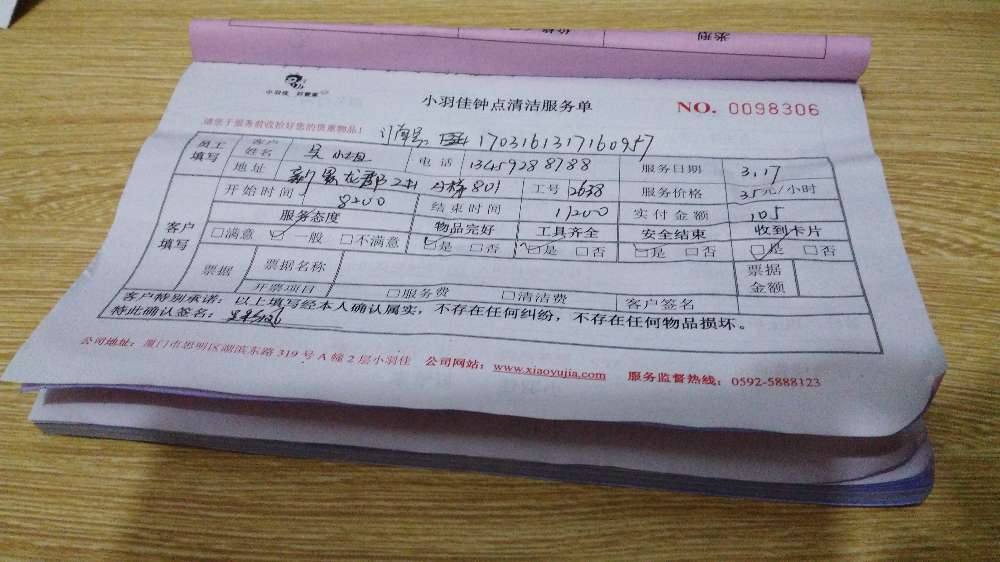 小羽佳 好管家
小羽佳钟点清洁服务单
NO. 0098306
请您于服务前收拾好您的贵重物品!
订单号: 1703161317160957
员工填写 客户姓名 吴小姐 电话 13459288788 服务日期 3.17
地址 龙郡 801 工号 2638 服务价格 35元/小时
客户填写 开始时间 8:00 结束时间 11:00 实付金额 105
服务态度 物品完好 工具齐全 安全结束 收到卡片
□满意 ☑一般 □不满意 ☑是 □否 ☑是 □否 ☑是 □否 ☑是 □否
票据 票据名称 票据金额
开票项目 □服务费 □清洁费 客户签名
客户特别承诺:以上填写经本人确认属实,不存在任何纠纷,不存在任何物品损坏。
特此确认签名:
公司地址:厦门市思明区湖滨东路319号A幢2层小羽佳 公司网站:www.xiaoyujia.com 服务监督热线:0592-5888123